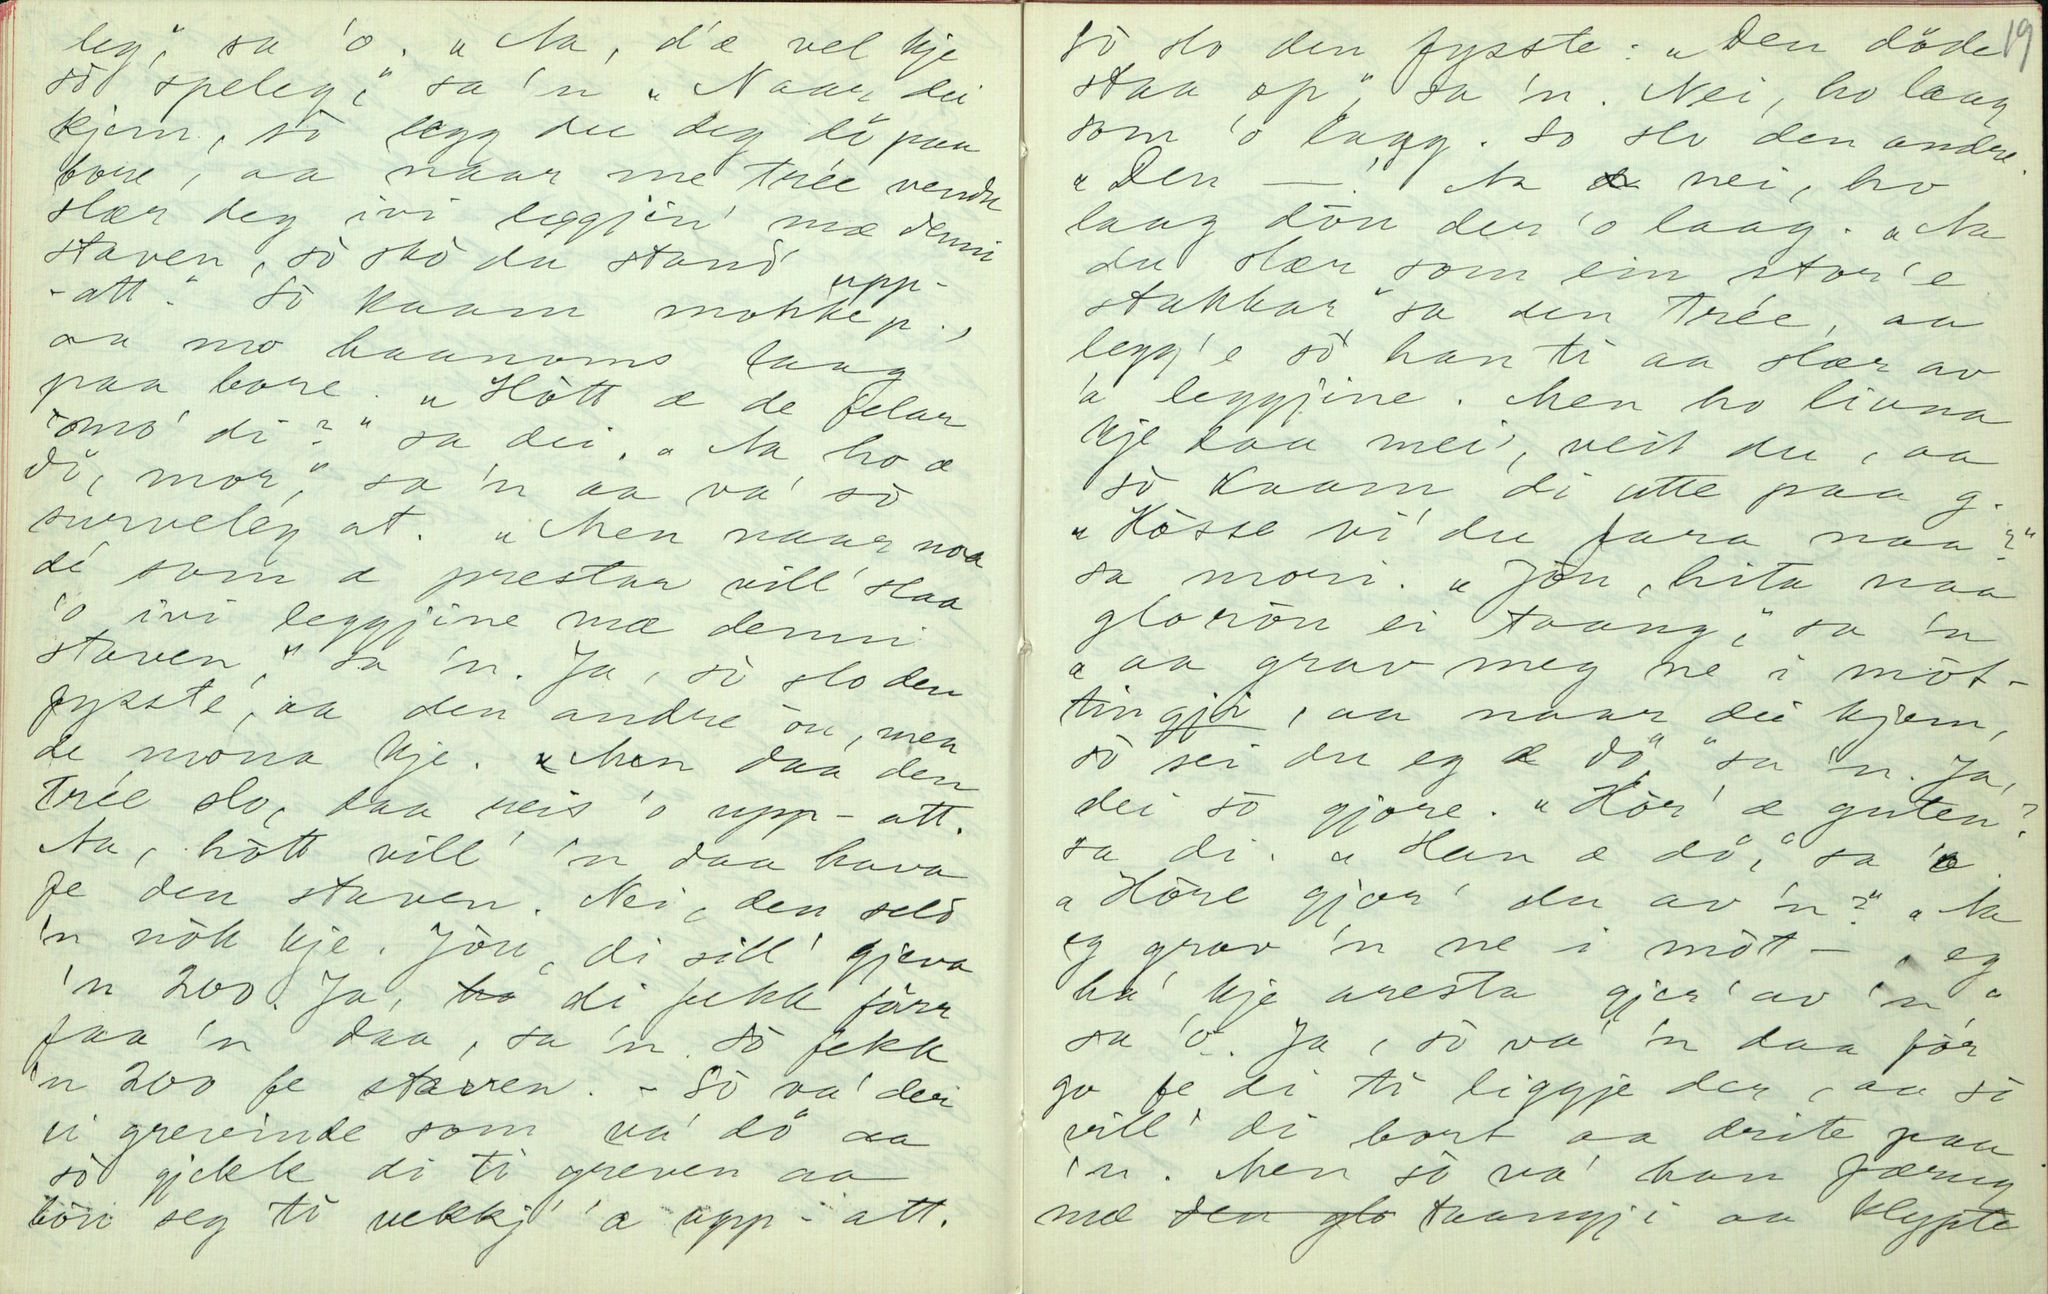 leg," sa 'o. "Na, d'æ vel kje
sò speleg," sa 'n "Naar dei
kjem, sò legg du deg dö paa
bore, aa naar me trée vendu
slær deg ivi leggjin' mæ denni
staven, sò skò du stand' upp-
-att." Sò kaam mokkë p.,
aa mo haanoms laag
paa bore. "Hòtt æ de felar
mo' di?" sa dei. "Na ho æ
dö, mor," sa 'n aa va' sò
surveleg at. "Men naar noa
dé som æ prestar vill' slaa
'o ivi leggjine mæ denni
staven," sa 'n. Ja, sò slo den
fysste, aa den andre òu, men
de móna kje. Men daa den
trée slo, daa reis 'o upp-att.
Na, hòtt vill' 'n daa hava
fe den staven. Nei, den seld
'n nòk kje. Jòu, di sill' gjeva
'n 200. Ja, di fekk förr
faa 'n daa, sa 'n. Sò fekk
'n 200 fe staven. - Sò va' dei
ei grevinde som va' dö aa
sò gjekk di ti greven aa
bòu seg ti vekkj' 'a upp-att.
19
Sò slo den fysste: "Den döde
staa op", sa 'n. Nei, ho laag
som 'o laag. So slo den andre.
"Den —!" Na nei, ho
laag dòu der 'o laag. "Na
du slær som ein stor'e
stakkar" sa den trée, aa
legg'e sò han ti aa slær av
'a leggjine. Men ho livna
kje daa mei', veit du, aa
sò kaam di atte paa g.
"Hòsse vi' du fara naa?"
sa mori. "Jòu, hita naa
gloròu ei taang," sa 'n
"aa grav meg ne i mòt-
tingji, aa naar dei kjem,
sò sei du eg æ dö" sa 'n. Ja,
dei sò gjore. "Hòr' æ guten?
sa di. "Han æ dö," sa 'o.
"Hòre gjor' du av 'n?" "Na
eg grov 'n ne i mòt-, eg
ha' kje aresta gjer' av 'n"
sa 'o. Ja, sò va' 'n daa fór
go fe di ti liggje der, aa sò
vill' di bort aa drite paa
'n. Men sò va' han færug
mæ den glo taangji aa klypte